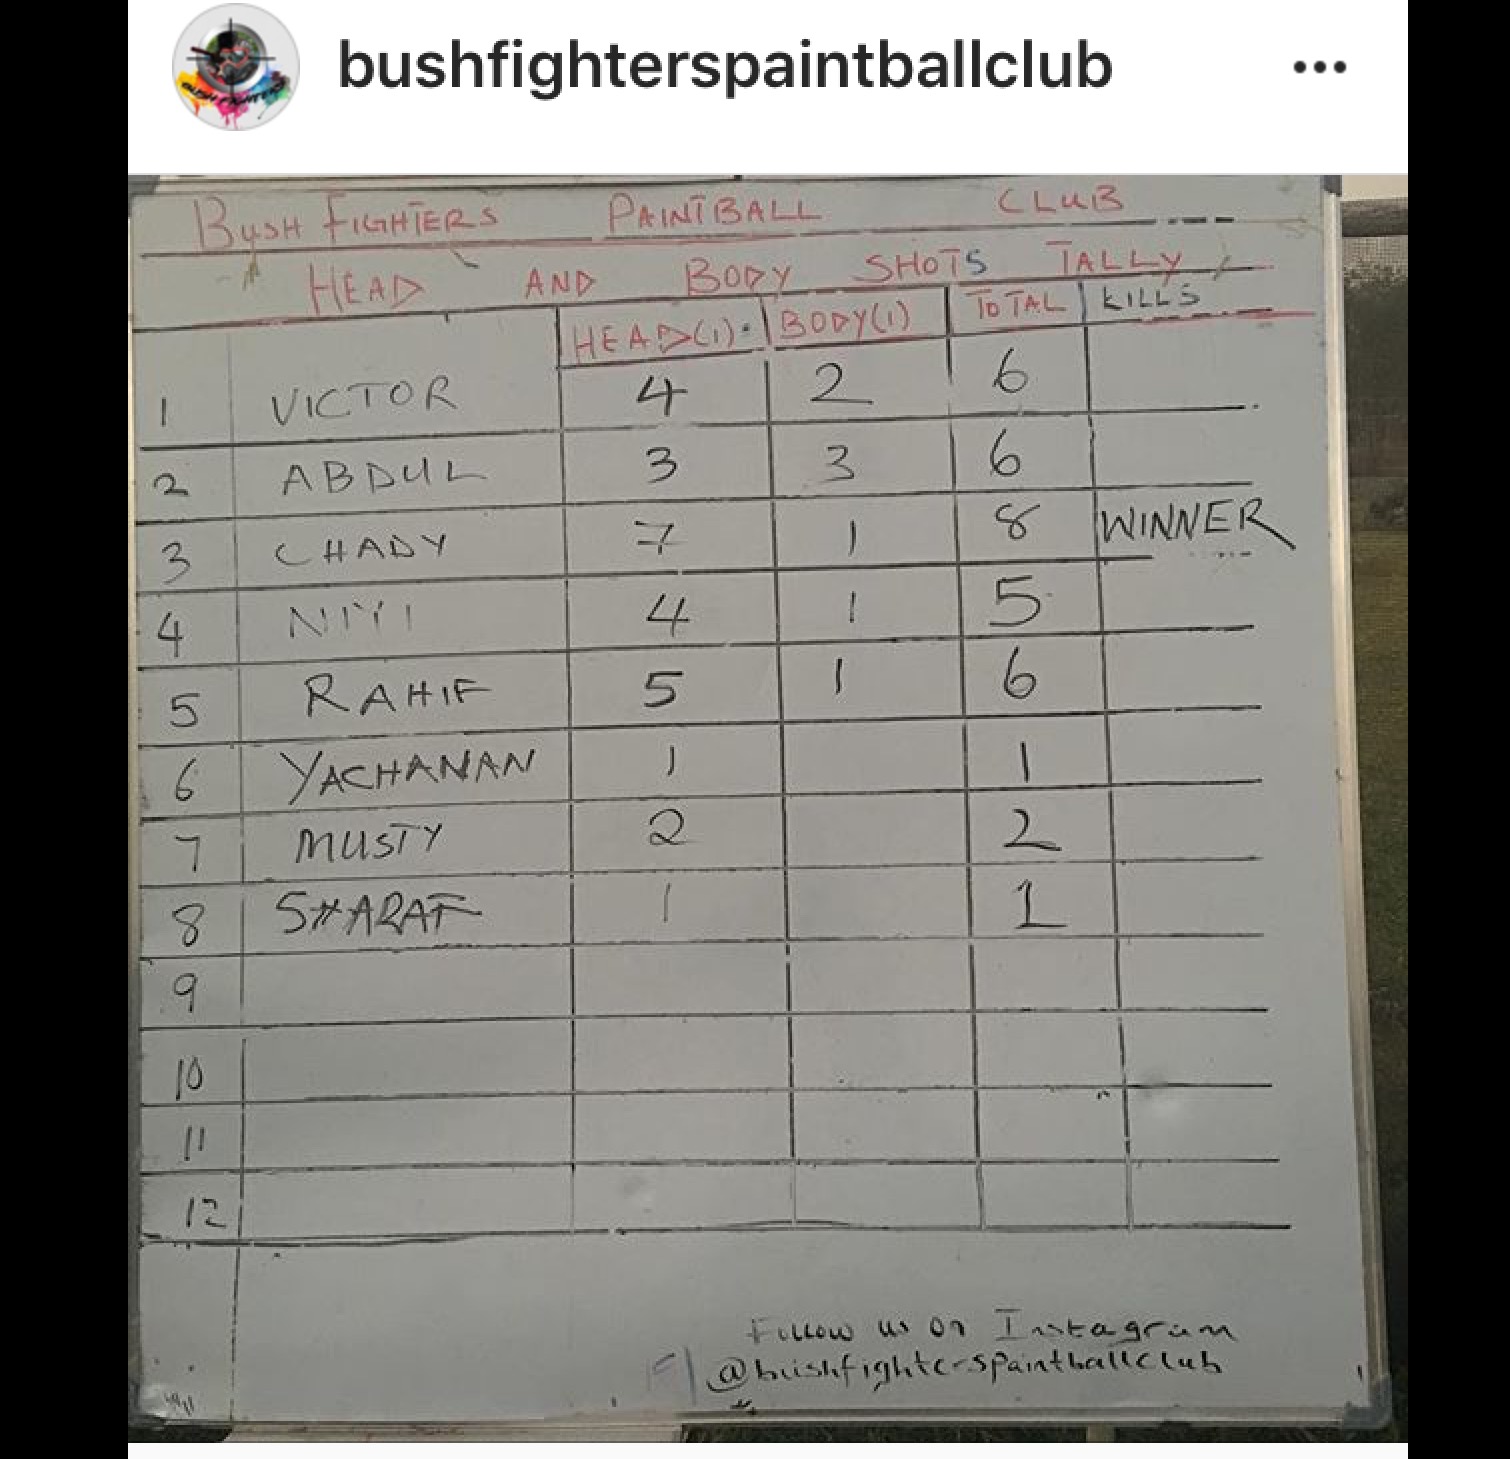 bushfighterspaintballclub
BUSH FIGHTERS PAINTBALL CLUB
HEAD AND BODY SHOTS TALLY
HEAD(1) BODY(1) TOTAL KILLS
1 VICTOR 4 2 6
2 ABDUL 3 3 6
3 CHADY 7 1 8 WINNER
4 NIYI 4 1 5
5 RAHIF 5 1 6
6 YACHANAN 1 1
7 MUSTY 2 2
8 SHARAF 1 1
9
10
11
12
Follow us on Instagram
@bushfighterspaintballclub